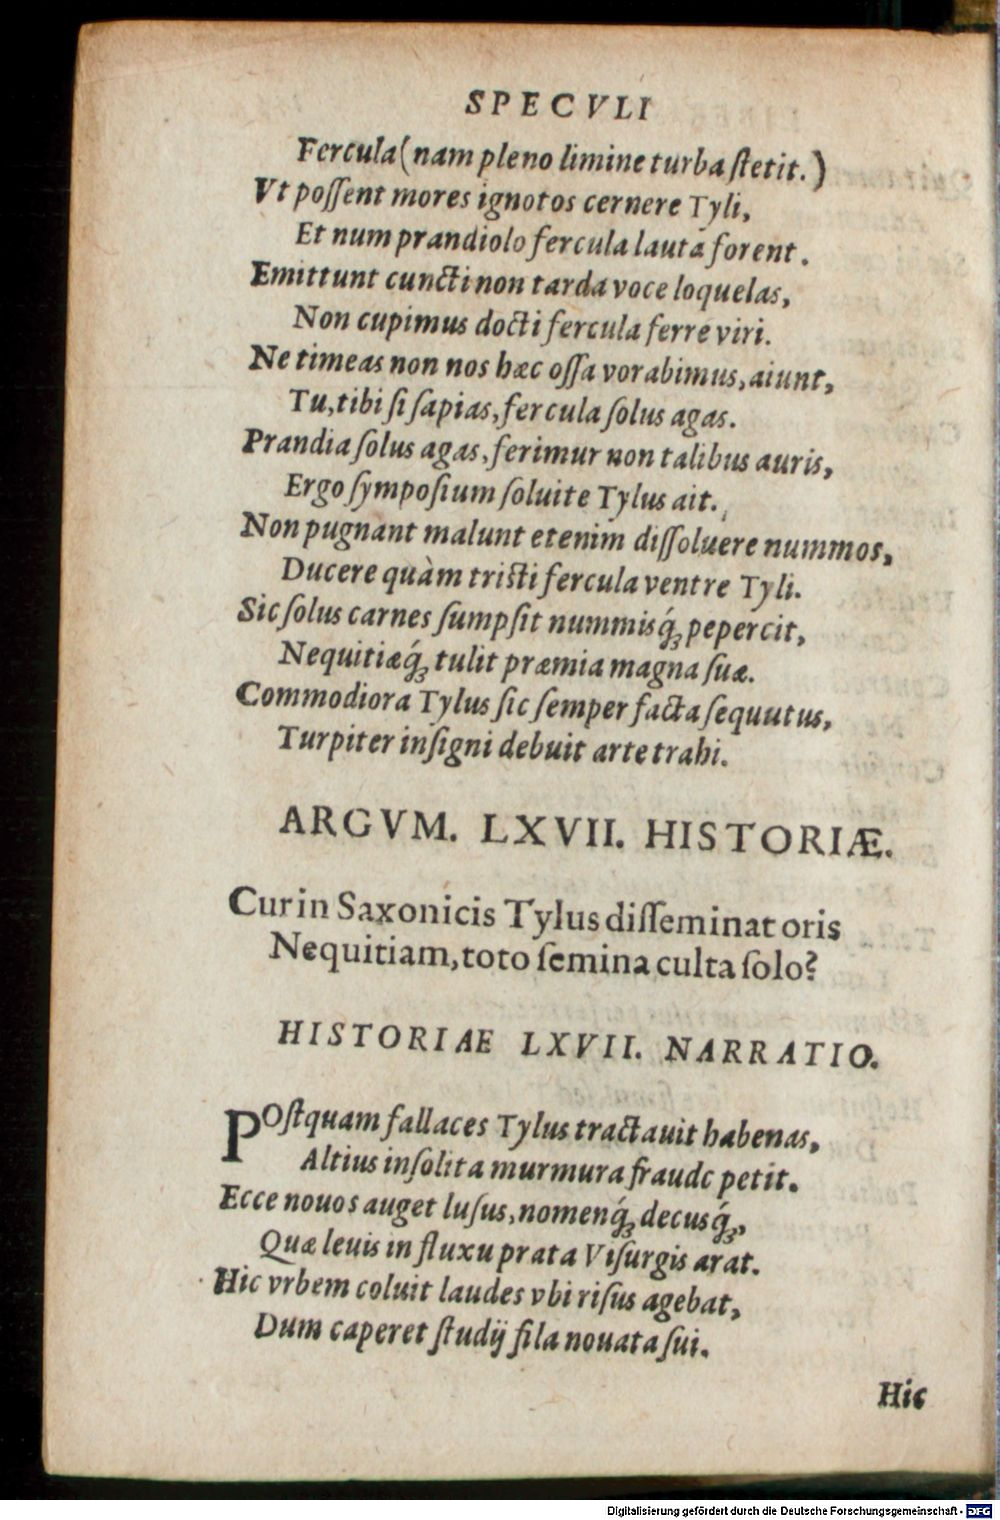 SPECVLI
Fercula (nam pleno limine turba ſtetit.)
Vt poſſent mores ignotos cernere Tyli,
Et num prandiolo fercula lauta forent.
Emittunt cuncti non tarda voce loquelas,
Non cupimus docti fercula ferre viri.
Ne timeas non nos hæc oſſa vorabimus, aiunt,
Tu, tibi ſi ſapias, fercula ſolus agas.
Prandia ſolus agas, ferimur non talibus auris,
Ergo ſympoſium ſoluite Tylus ait.
Non pugnant malunt etenim diſſoluere nummos,
Ducere quàm triſti fercula ventre Tyli.
Sic ſolus carnes ſumpſit nummisq́ꝫ pepercit,
Nequitiæq́ꝫ tulit præmia magna ſuæ.
Commodiora Tylus ſic ſemper facta ſequutus,
Turpiter inſigni debuit arte trahi.
ARGVM. LXVII. HISTORIÆ.
Cur in Saxonicis Tylus diſſeminat oris
Nequitiam, toto ſemina culta ſolo?
HISTORIAE LXVII. NARRATIO.
POſtquam fallaces Tylus tractauit habenas,
Altius inſolita murmura fraude petit.
Ecce nouos auget luſus, nomenq́ꝫ decusq́ꝫ,
Quæ leuis influxu prata Viſurgis arat.
Hic vrbem coluit laudes vbi riſus agebat,
Dum caperet ſtudij fila nouata ſui.
Hic
Digitalisierung gefördert durch die Deutsche Forschungsgemeinschaft - DFG